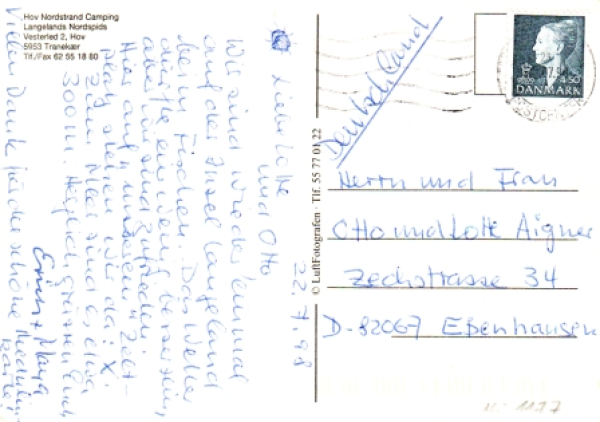 Hov Nordstrand Camping
Langelands Nordspids
Vesterled 2, Hov
5953 Tranekær
Tlf./Fax 62 55 18 80
22.7.98
Liebe Lotte
und Otto,
Wir sind wieder einmal
auf der Insel Langeland
beim Fischen. Das Wetter
dürfte ein wenig besser sein,
aber wir sind zufrieden.
Hier auf unserem Zelt-
platz stehen wir da: X.
Zum Meer sind es etwa
300 m. Herzlich grüssen Euch
Erich + Marg
Vielen Dank für die schöne
karte!
© LuftFotografen · Tlf. 55 77 01 22
DANMARK
4.50
Deutschland
Herrn und Frau
Otto und Lotte Aigner
Zechstrasse 34
D-82067 Ebenhausen
1177